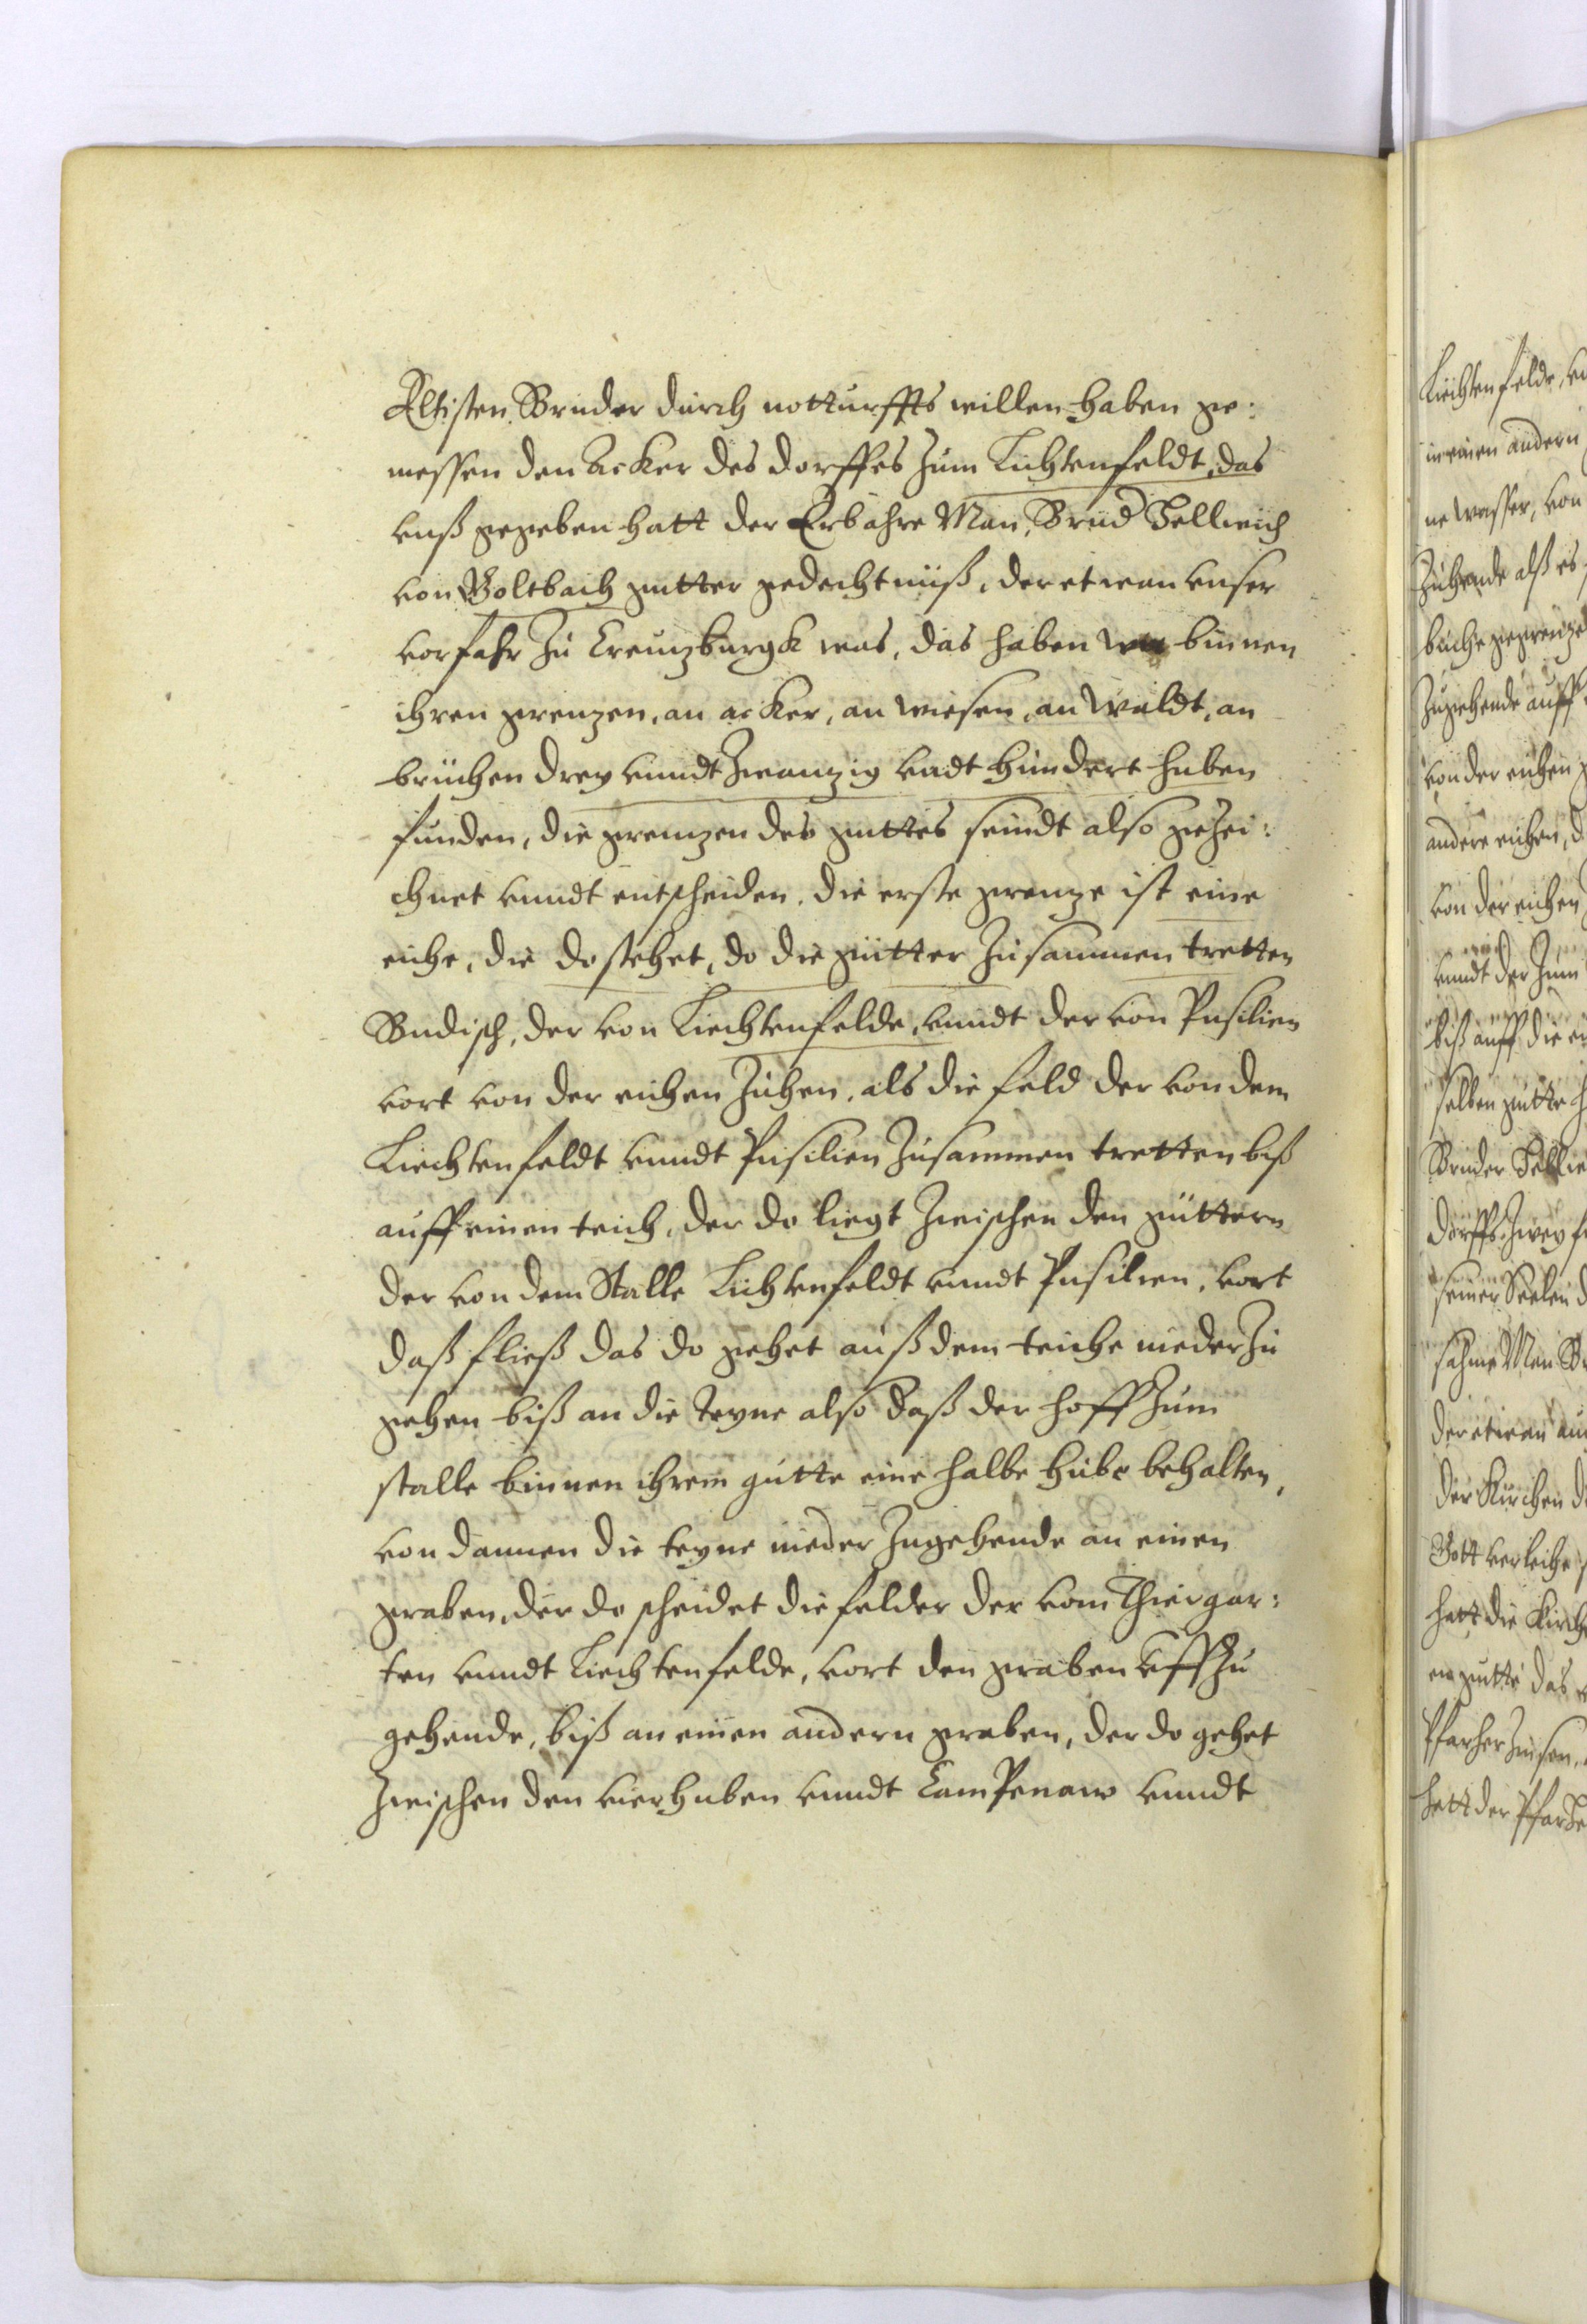 Altisten Bruder durch notturffts willen haben ge:
messen den Acker des dorffes zum Lichtenfeldt, das
vnß gegeben hatt der Erbahre Man, Brud
von Goltbach gutter gedechtnüß, der etwan vnser
vorfahr zu Creuzburgk was, das haben wir binnen
ihren grenzen, an acker, an wiesen, an Waldt, an
brüchen drey vnndt zwanzig vndt hundert huben
funden, die grenzen des guttes seindt also gezei:
chnet vnndt entscheiden. die erste grenze ist eine
eiche, die do stehet, do die gütter zusammen tretten
Budisch, der von Liechtenfelde, vnndt der von Pusilien
vort von der eichen zichen, als die feld der von dem
Liechtenfeldt vnndt Pusilien zusammen tretten biß
auff einen teich, der do liegt zwischen den güttern
der von dem Stalle Lichtenfeldt vnndt Pusilien, vort
daß fließ das do gehet auß dem teiche nieder zu
gehen biß an die teyne also daß der hoff zum
stalle binnen ihrem gutte eine halbe hube behalten,
von dannen die teyne nieder zugehende an einen
graben, der do scheidet die felder der vom Thiergar:
ten vnndt Liechtenfelde, vort den graben vff zu
gehende, biß an einen andern graben, der do gehet
zwischen den vierhuben vnndt Campenaw vnndt
Liechtenfelde,
in einen andern
ne wasser, von
Zichende alß es

Zugehende auff
von der eichen
andere eichen, d
von der eichen
vnndt der zum
biß auff die
selben gutte
Bruder
dorffs zwey
seiner Seelen
sahme Man
der etwan
der Kirchen
Gott verleihe
hatt die Kirch
en gutte das
Pfarher
hatt der Pfar